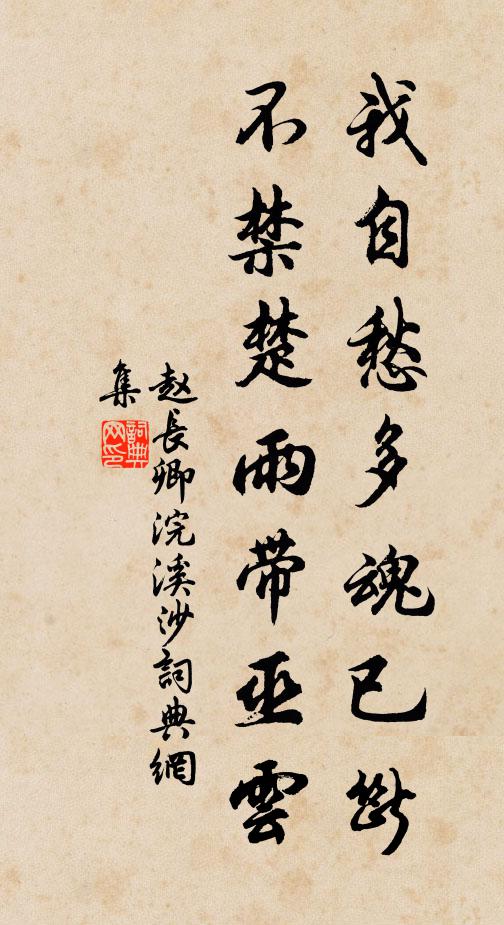 我自愁多魂已断
不禁楚雨带巫雲
赵長卿浣溪沙詞典網
集
詞典
网印